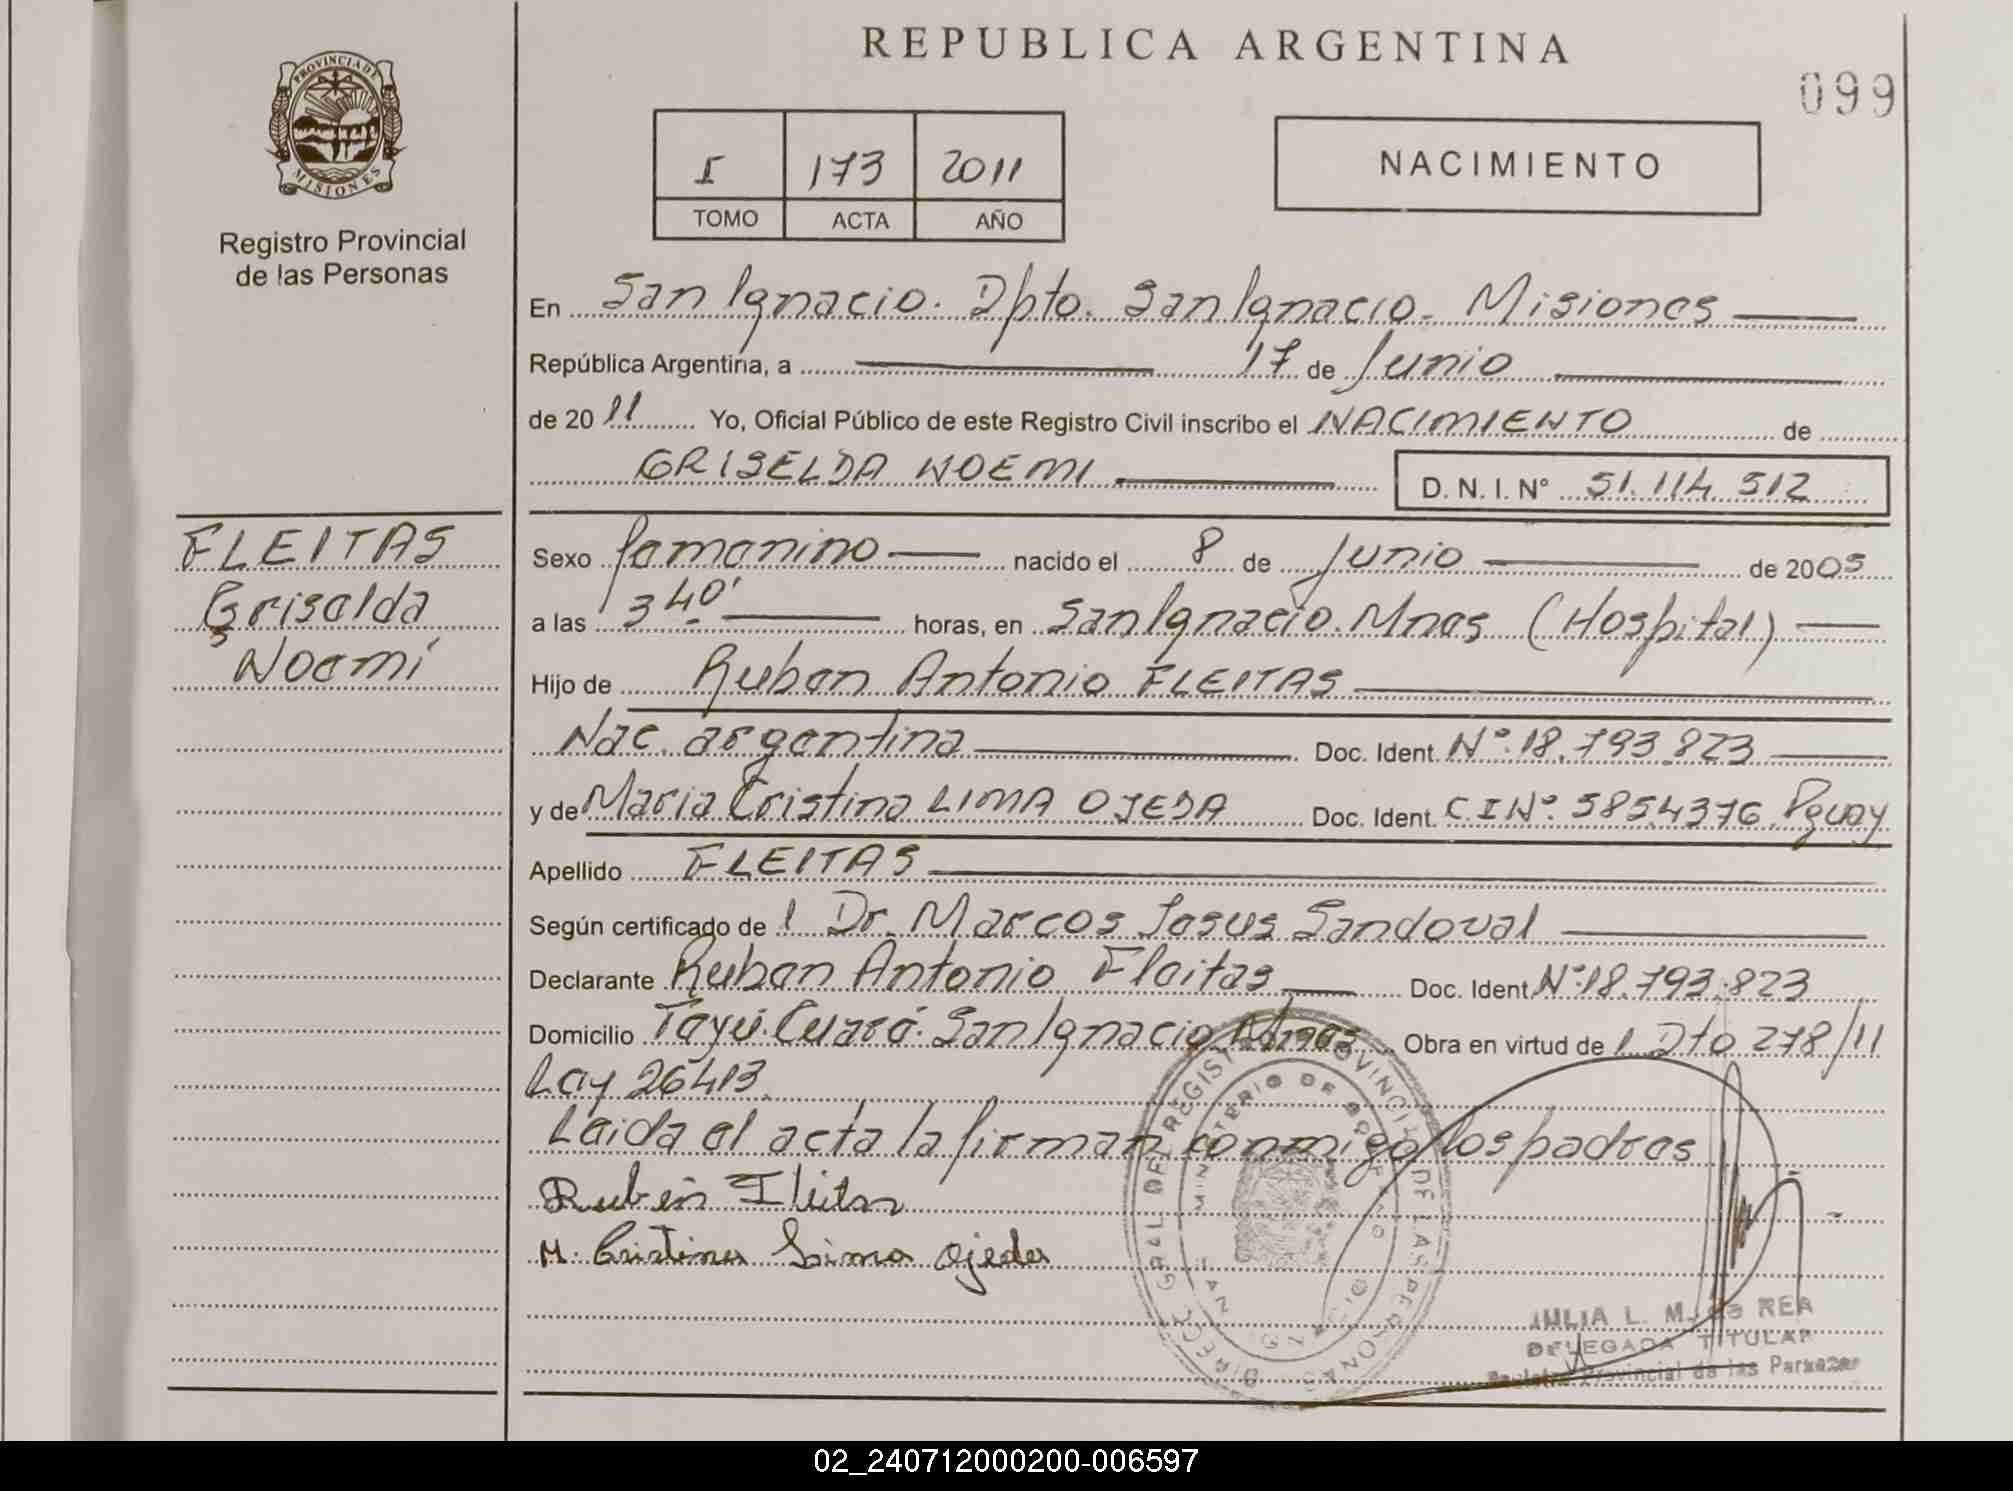 REPUBLICA ARGENTINA
099
PROVINCIA DE
MISIONES
Registro Provincial
de las Personas
I 173 2011
TOMO ACTA AÑO
NACIMIENTO
En San Ignacio. Dpto. San Ignacio. Misiones
República Argentina, a 17 de Junio
de 2011 Yo, Oficial Público de este Registro Civil inscribo el NACIMIENTO de
GRISELDA NOEMI D. N. I. Nº 51.114.512
FLEITAS
Griselda
Noemí
Sexo femenino nacido el 8 de Junio de 2005
a las 3 40' horas, en San Ignacio. Mnes (Hospital)
Hijo de Ruben Antonio FLEITAS
Nac. argentina Doc. Ident. Nº 18.793.823
y de Maria Cristina LIMA OJEDA Doc. Ident. C I Nº 5854376 Pguay
Apellido FLEITAS
Según certificado de l Dr. Marcos Jesus Sandoval
Declarante Ruben Antonio Fleitas Doc. Ident Nº 18.793.823
Domicilio Tayú Cuaré. San Ignacio Mnes Obra en virtud de l Dto 278/11
Ley 26413.
Leida el acta la firman conmigo los padres
Ruben Fleitas
M. Cristina Lima Ojeda
DIRECC GRAL DEL REGISTRO PROVINCIAL DE LAS PERSONAS
MINISTERIO DE GOBIERNO
SAN IGNACIO
JULIA L. M. de REA
DELEGADA TITULAR
Registro Provincial de las Personas
02_240712000200-006597